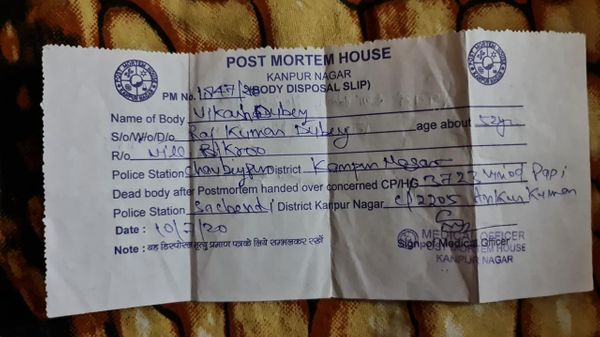 POST MORTEM HOUSE
KANPUR NAGAR
PM No. 1847/20 (BODY DISPOSAL SLIP)
Name of Body Vikash Dubey
S/o/W/o/D/o Raj Kumar Dubey age about 52yr
R/o Vill Bikroo
Police Station Chaubeypur District Kanpur Nagar
Dead body after Postmortem handed over concerned CP/HG 3723 Vinod
Police Station Sachendi District Kanpur Nagar C/2205 Ankur Kumar
Date : 10/7/20
Sign of Medical Officer
MEDICAL OFFICER
POST MORTEM HOUSE
KANPUR NAGAR
Note : यह डिस्पोजल मृत्यु प्रमाण पत्र के लिये सम्भालकर रखें